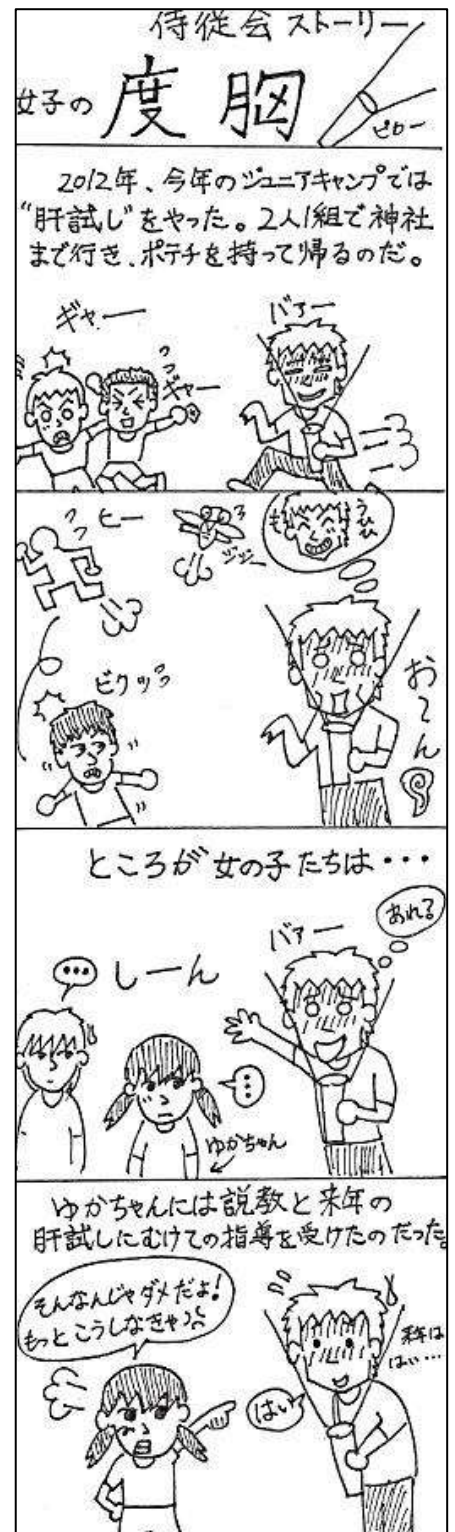 侍従会ストーリー
女子の度胸
ピロー
2012年、今年のジュニアキャンプでは
“肝試し”をやった。2人1組で神社
まで行き、ポテチを持って帰るのだ。
ギャー
ギャー
バァー
ヒー
ジジー
うひひ
も
ビクッ
お〜ん
ところが女の子たちは・・・
あれ?
バァー
・・・
しーん
・・・
ゆかちゃん
ゆかちゃんには説教と来年の
肝試しにむけての指導を受けたのだった。
そんなんじゃダメだよ!
もっとこうしなきゃ
はい
来年は
はい…